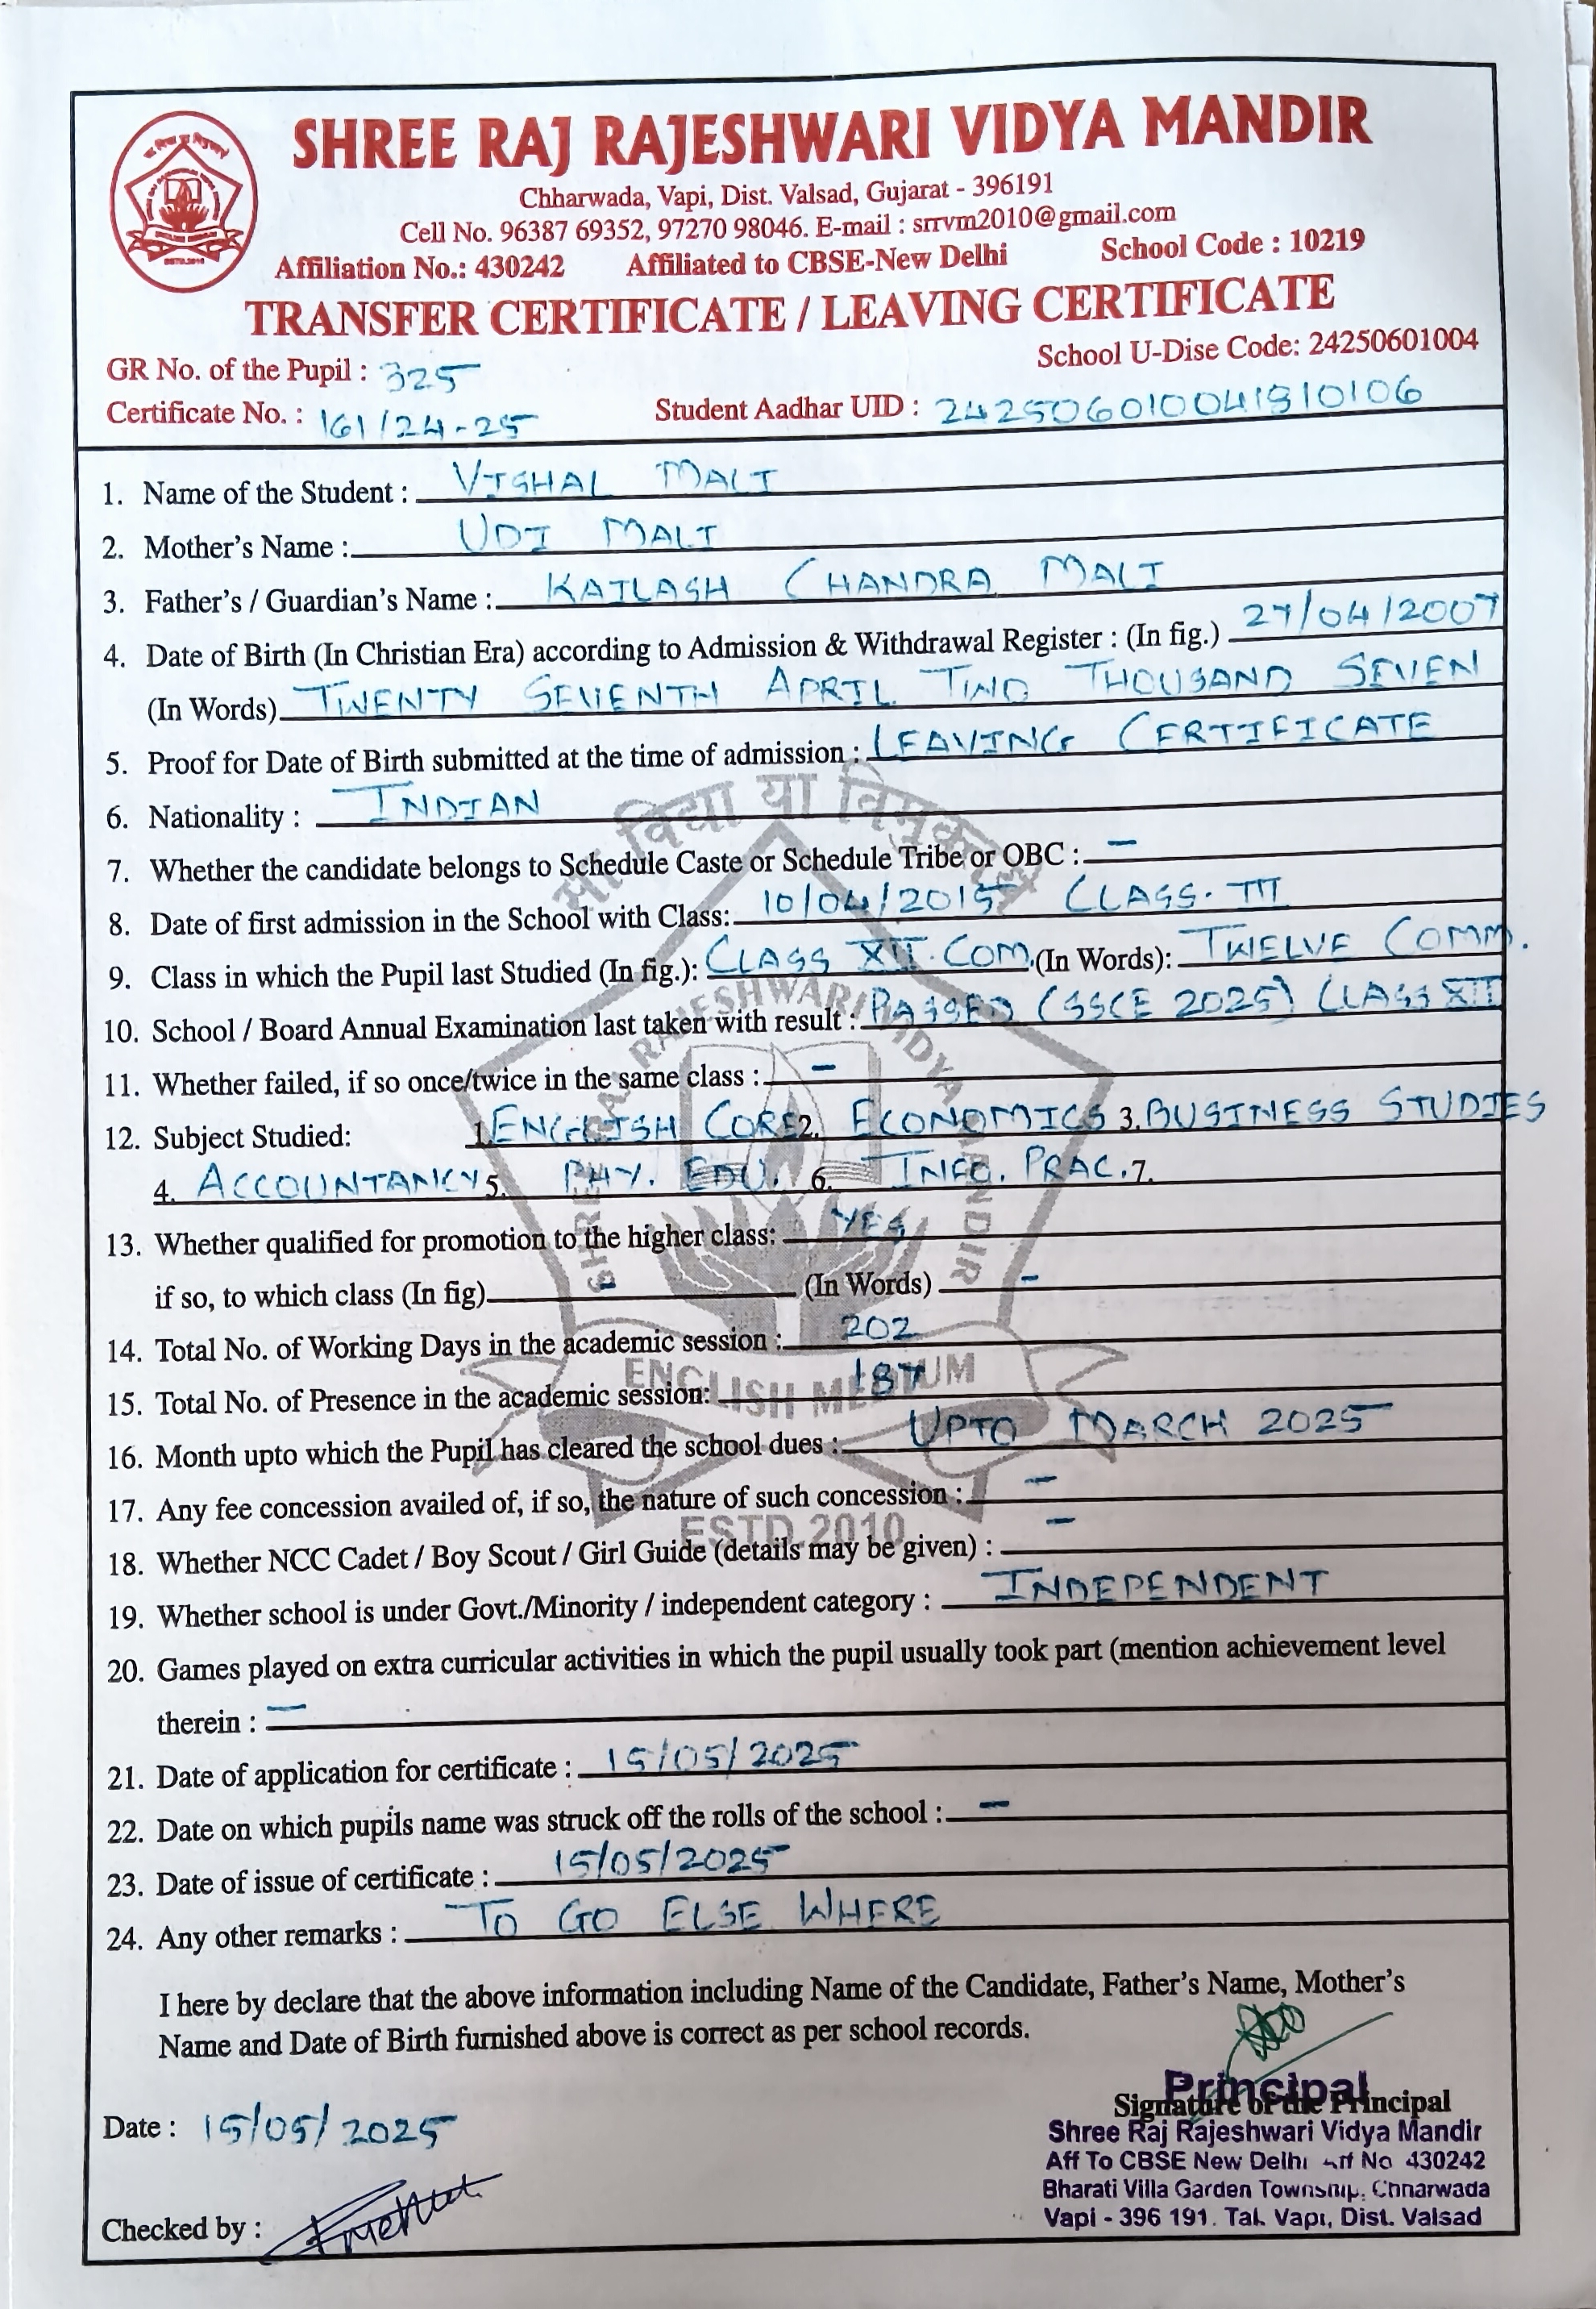 SHREE RAJ RAJESHWARI VIDYA MANDIR
Chharwada, Vapi, Dist. Valsad, Gujarat - 396191
Cell No. 96387 69352, 97270 98046. E-mail : srrvm2010@gmail.com
Affiliation No.: 430242 Affiliated to CBSE-New Delhi School Code : 10219
TRANSFER CERTIFICATE / LEAVING CERTIFICATE
School U-Dise Code: 24250601004
GR No. of the Pupil : 325
Certificate No. : 161/24-25 Student Aadhar UID : 242506010041910106
1. Name of the Student : VISHAL MALI
2. Mother's Name : UDI MALI
3. Father's / Guardian's Name : KAILASH CHANDRA MALI
4. Date of Birth (In Christian Era) according to Admission & Withdrawal Register : (In fig.) 27/04/2007
(In Words) TWENTY SEVENTH APRIL TWO THOUSAND SEVEN
5. Proof for Date of Birth submitted at the time of admission : LEAVING CERTIFICATE
6. Nationality : INDIAN
7. Whether the candidate belongs to Schedule Caste or Schedule Tribe or OBC : –
8. Date of first admission in the School with Class: 10/04/2015 CLASS. III
9. Class in which the Pupil last Studied (In fig.): CLASS XII. COM. (In Words): TWELVE COMM.
10. School / Board Annual Examination last taken with result : PASSED (SSCE 2025) CLASS XII
11. Whether failed, if so once/twice in the same class : –
12. Subject Studied: 1. ENGLISH CORE 2. ECONOMICS 3. BUSINESS STUDIES
4. ACCOUNTANCY 5. PHY. EDU. 6. INFO. PRAC. 7.
13. Whether qualified for promotion to the higher class: YES
if so, to which class (In fig) – (In Words) –
14. Total No. of Working Days in the academic session : 202
15. Total No. of Presence in the academic session: 187
16. Month upto which the Pupil has cleared the school dues : UPTO MARCH 2025
17. Any fee concession availed of, if so, the nature of such concession : –
18. Whether NCC Cadet / Boy Scout / Girl Guide (details may be given) : –
19. Whether school is under Govt./Minority / independent category : INDEPENDENT
20. Games played on extra curricular activities in which the pupil usually took part (mention achievement level
therein : –
21. Date of application for certificate : 15/05/2025
22. Date on which pupils name was struck off the rolls of the school : –
23. Date of issue of certificate : 15/05/2025
24. Any other remarks : TO GO ELSE WHERE
I here by declare that the above information including Name of the Candidate, Father's Name, Mother's
Name and Date of Birth furnished above is correct as per school records.
Principal
Signature of the Principal
Date : 15/05/2025
Shree Raj Rajeshwari Vidya Mandir
Aff To CBSE New Delhi Aff No 430242
Bharati Villa Garden Township, Chharwada
Vapi - 396 191. Tal. Vapi, Dist. Valsad
Checked by :
सा विद्या या विमुक्तये
SHREE RAJ RAJESHWARI VIDYA MANDIR
ENGLISH MEDIUM
ESTD.2010